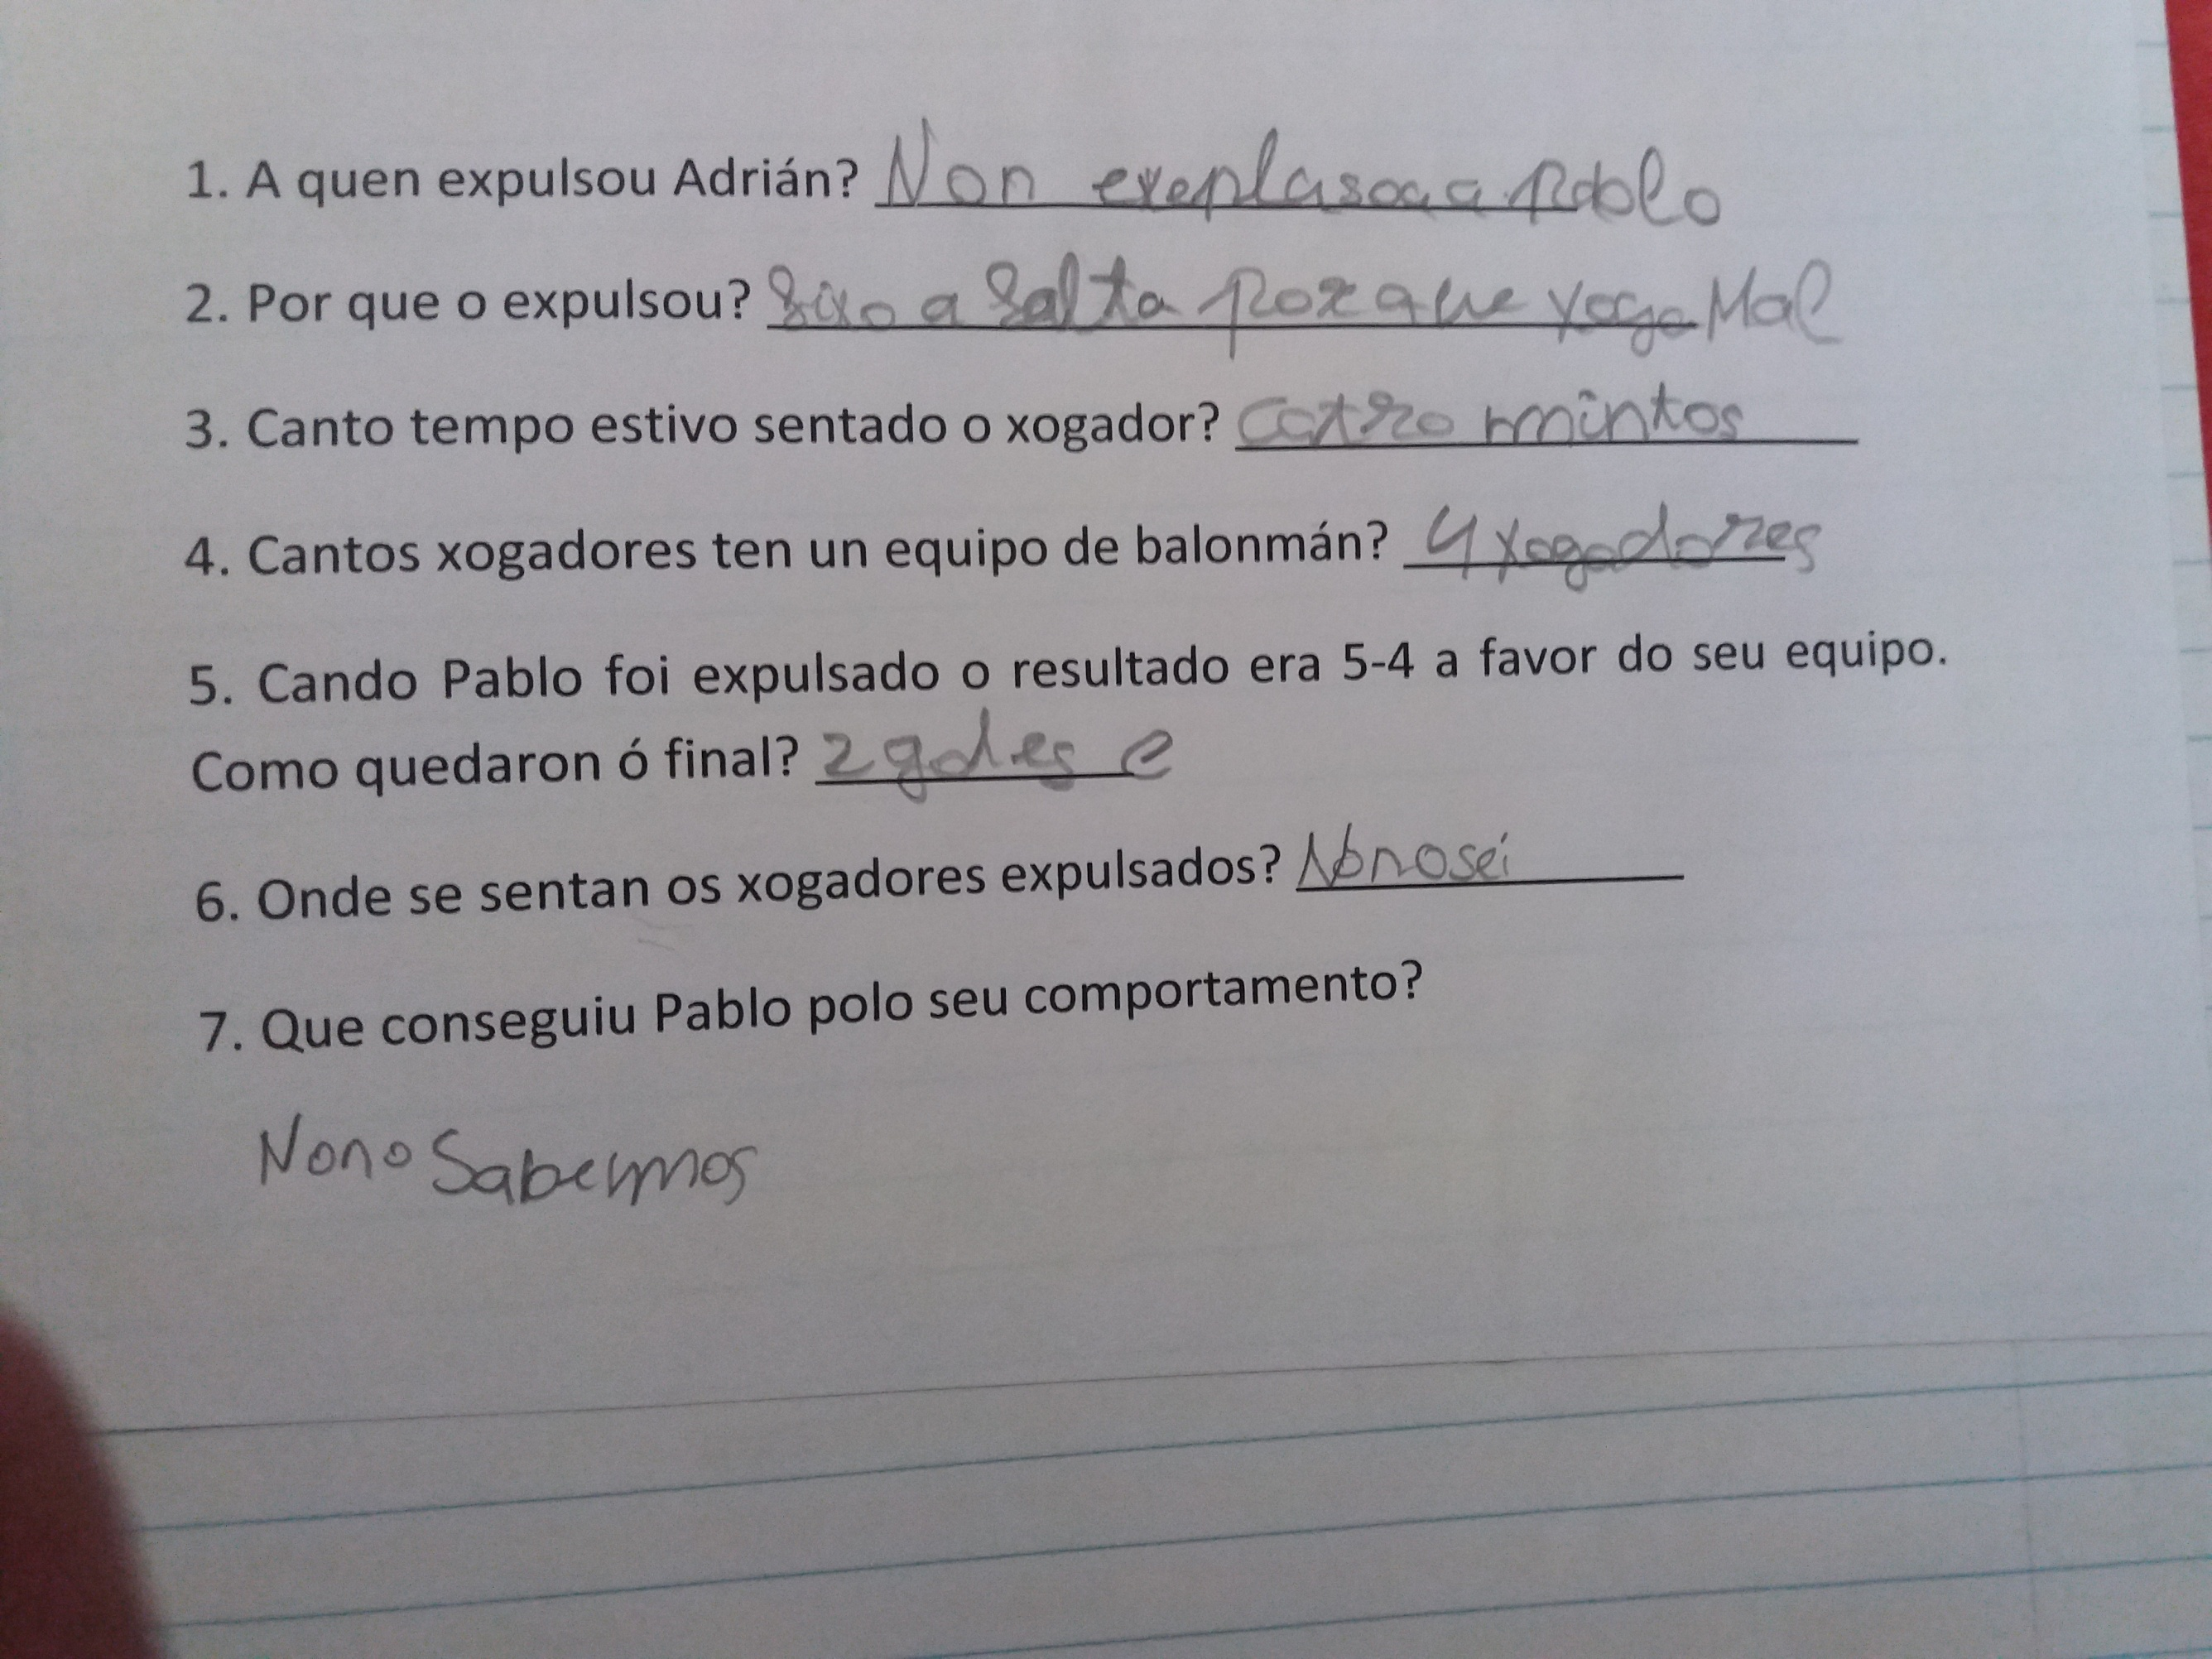 1. A quen expulsou Adrián? Non exeplasoa a Pablo
2. Por que o expulsou? a Salta porque xoga Mal
3. Canto tempo estivo sentado o xogador? catro mintos
4. Cantos xogadores ten un equipo de balonmán? 4 xogadores
5. Cando Pablo foi expulsado o resultado era 5-4 a favor do seu equipo.
Como quedaron ó final? 2 goles e
6. Onde se sentan os xogadores expulsados? Nonosei
7. Que conseguiu Pablo polo seu comportamento?
Nono Sabemos